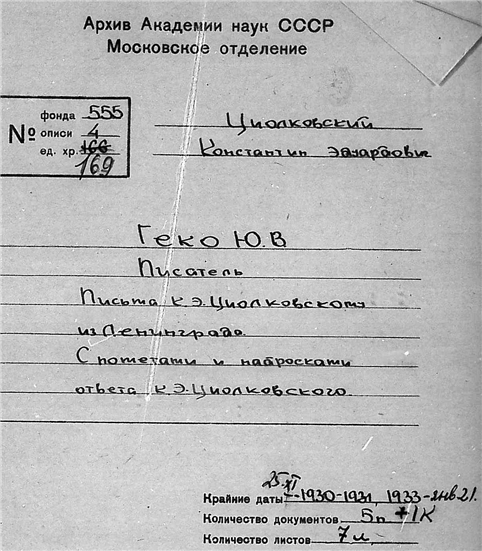 Архив Академии наук СССР
Московское отделение
№
фонда 555
описи 4
ед. хр. 166
169
Циолковский
Константин Эдуардович
Геко Ю.В
Писатель
Письма К.Э.Циолковскому
из Ленинграда.
С пометами и набросками
ответа К.Э.Циолковского.
25.XI
Крайние даты -1930-1931, 1933-янв 21.
Количество документов 5п +1К
Количество листов 7л.